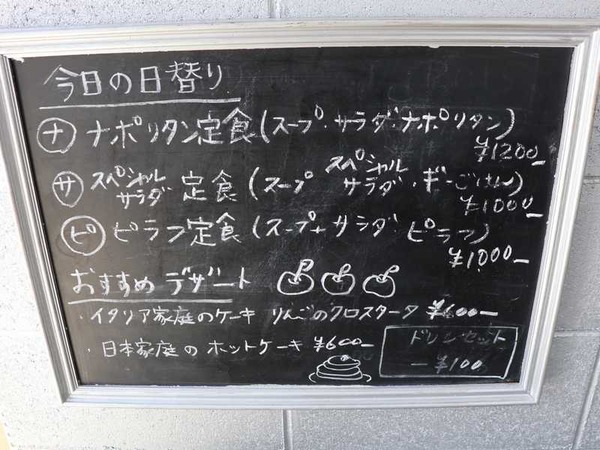 今日の日替り
ナ ナポリタン定食(スープ・サラダ・ナポリタン)
¥1200-
サ スペシャルサラダ 定食(スープ スペシャルサラダ・ギーごはん)
¥1000-
ピ ピラフ定食(スープ+サラダ ピラフ)
¥1000-
おすすめデザート
・イタリア家庭のケーキ りんごのクロスタータ ¥600-
・日本家庭の ホットケーキ ¥600-
ドリンクセット
-¥100